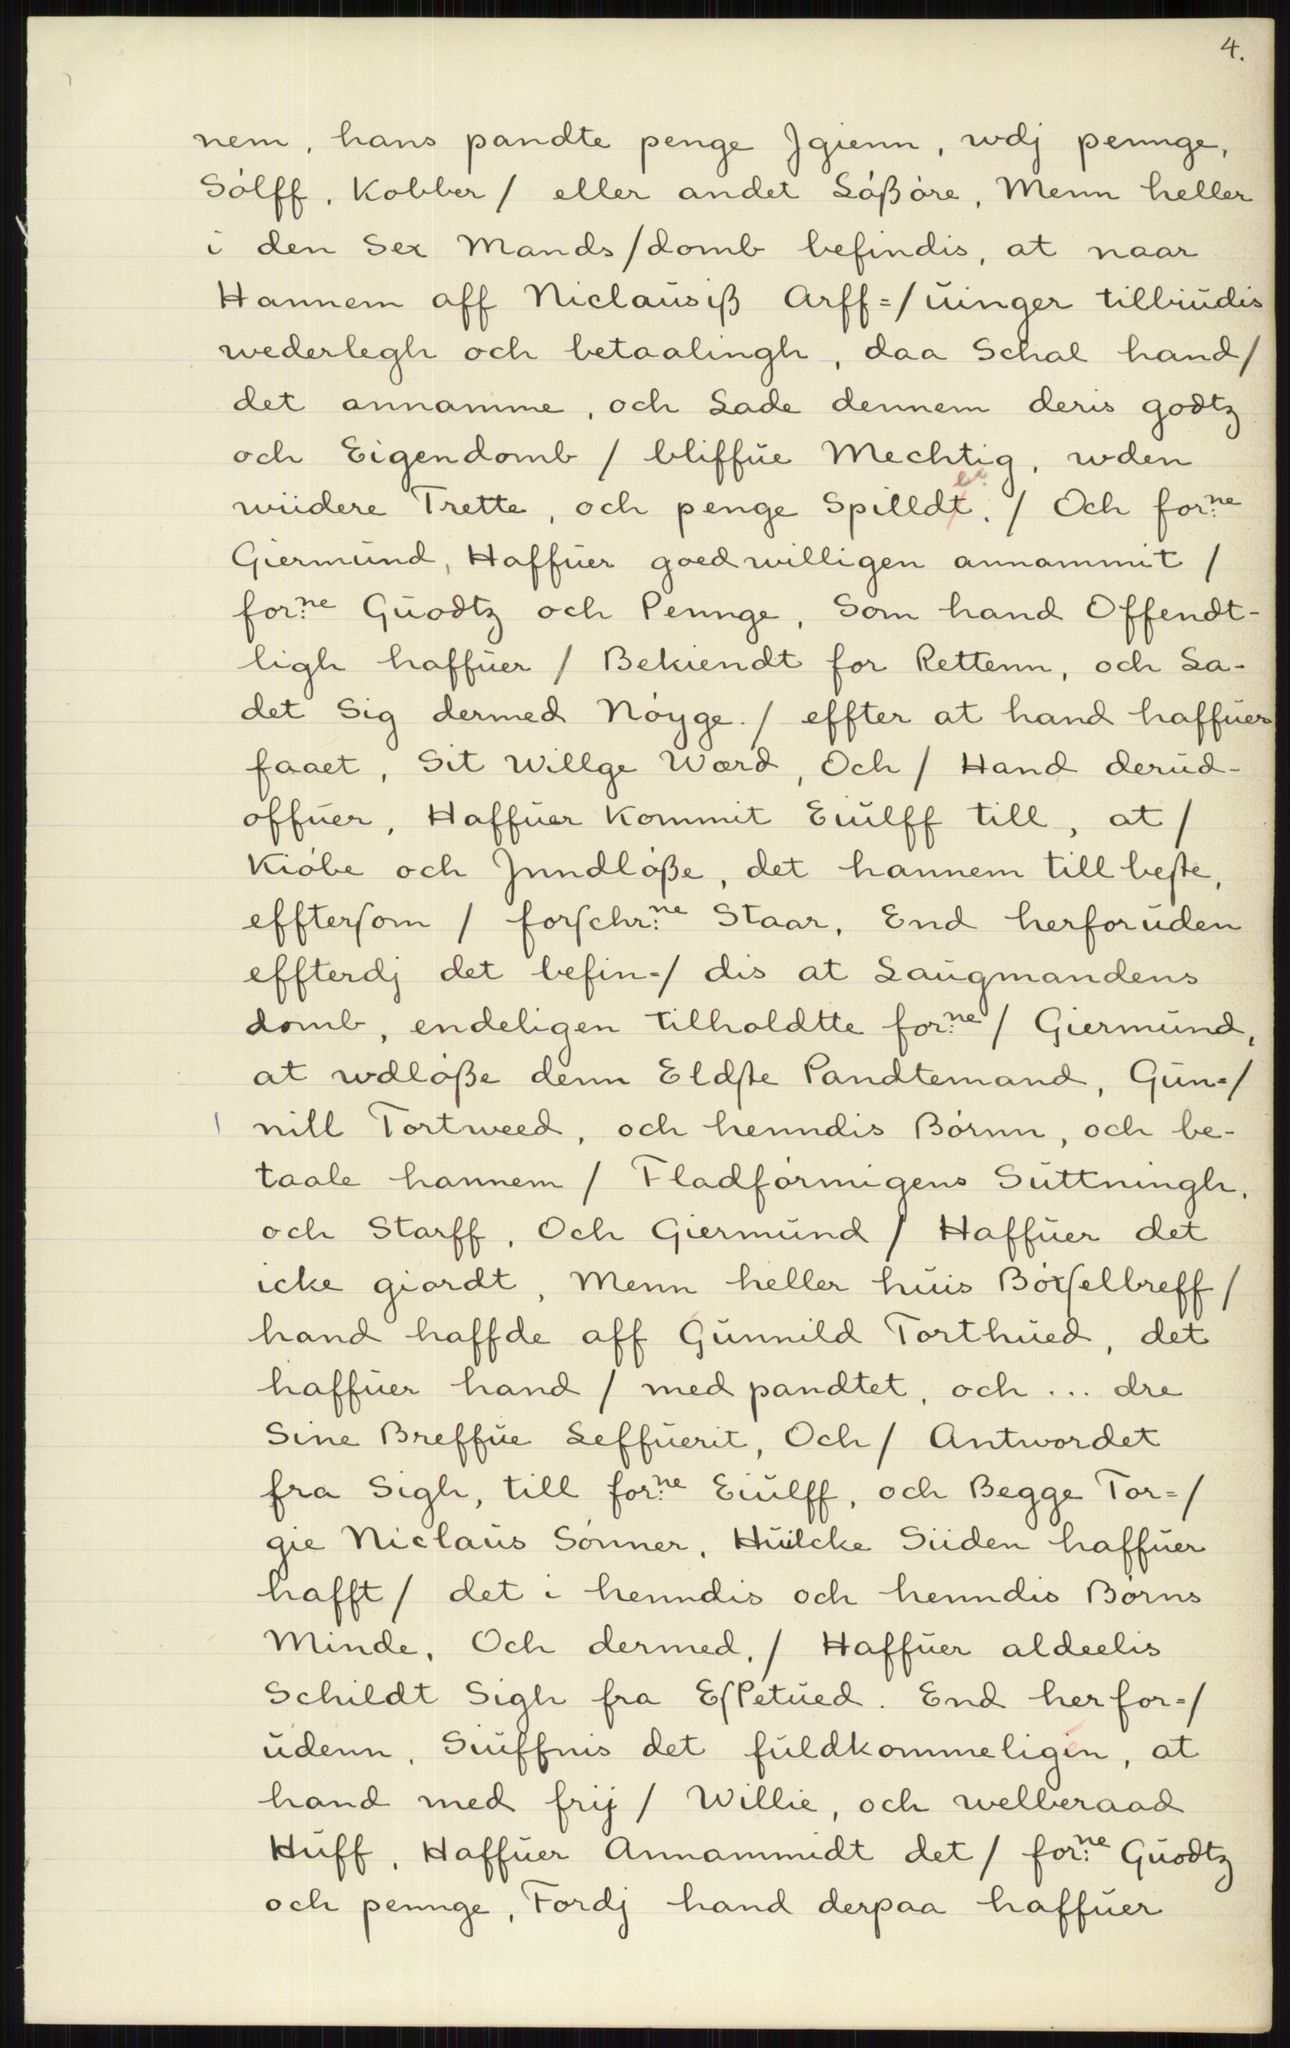 4.
nem, hans pandte penge Jgienn, wdj pennge,
Sólff, Kobber / eller andet Lóßóre, Menn heller
i den Sex Mands/domb befindis, at naar
Hannem aff Niclaŭsiß Arff=/ŭinger tilbiŭdis
wederlegh och betaalingh, daa Schal hand/
det annamme, och Lade dennem deris godtz
och Eigendomb / bliffŭe Mechtig, wden
wiidere Trette, och penge Spilldt. / Och for:ne
Giermŭnd, Haffŭer goedwilligen annammit /
for:ne Gŭodtz och Pennge, Som hand Offendt-
ligh haffŭer / Bekiendt for Rettenn, och La-
det Sig dermed Nóyge. / effter at hand haffŭer
faaet, Sit Willge Wærd, Och / Hand derŭd-
offŭer, Haffŭer Kommit Eiŭlff till, at /
Kióbe och Jnndlóße, det hannem till beste,
effterſom / forſchr:ne Staar, End herforŭden
effterdj det befin=/ dis at Laŭgmandens
domb, endeligen tilholdtte for:ne / Giermŭnd,
at wdlóße denn Eldſte Pandtemand, Gŭn=/
nill Tortweed, och henndis Bórnn, och be-
taale hannem / Fladfórmigens Sŭttningh,
och Starff, Och Giermŭnd / Haffŭer det
icke giordt, Menn heller hŭis Bóxſelbreff /
hand haffde aff Gŭnnild Torthŭed, det
haffŭer hand / med pandtet, och ... dre
Sine Breffŭe Leffŭerit, Och / Antwordet
fra Sigh, till for:ne Eiŭlff, och Begge Tor=/
gie Niclaŭs Sónner, Hŭilcke Siiden haffŭer
hafft / det i henndis och henndis Bórns
Minde, Och dermed, / Haffŭer aldeelis
Schildt Sigh fra Eſpetŭed. End herfor=/
ŭdenn, Siŭffnis det fŭldkommeligen, at
hand med frij / Willie, och welberaad
Hŭff, Haffŭer Annammidt det / for:ne Gŭodtz
och pennge, Fordj hand derpaa haffŭer